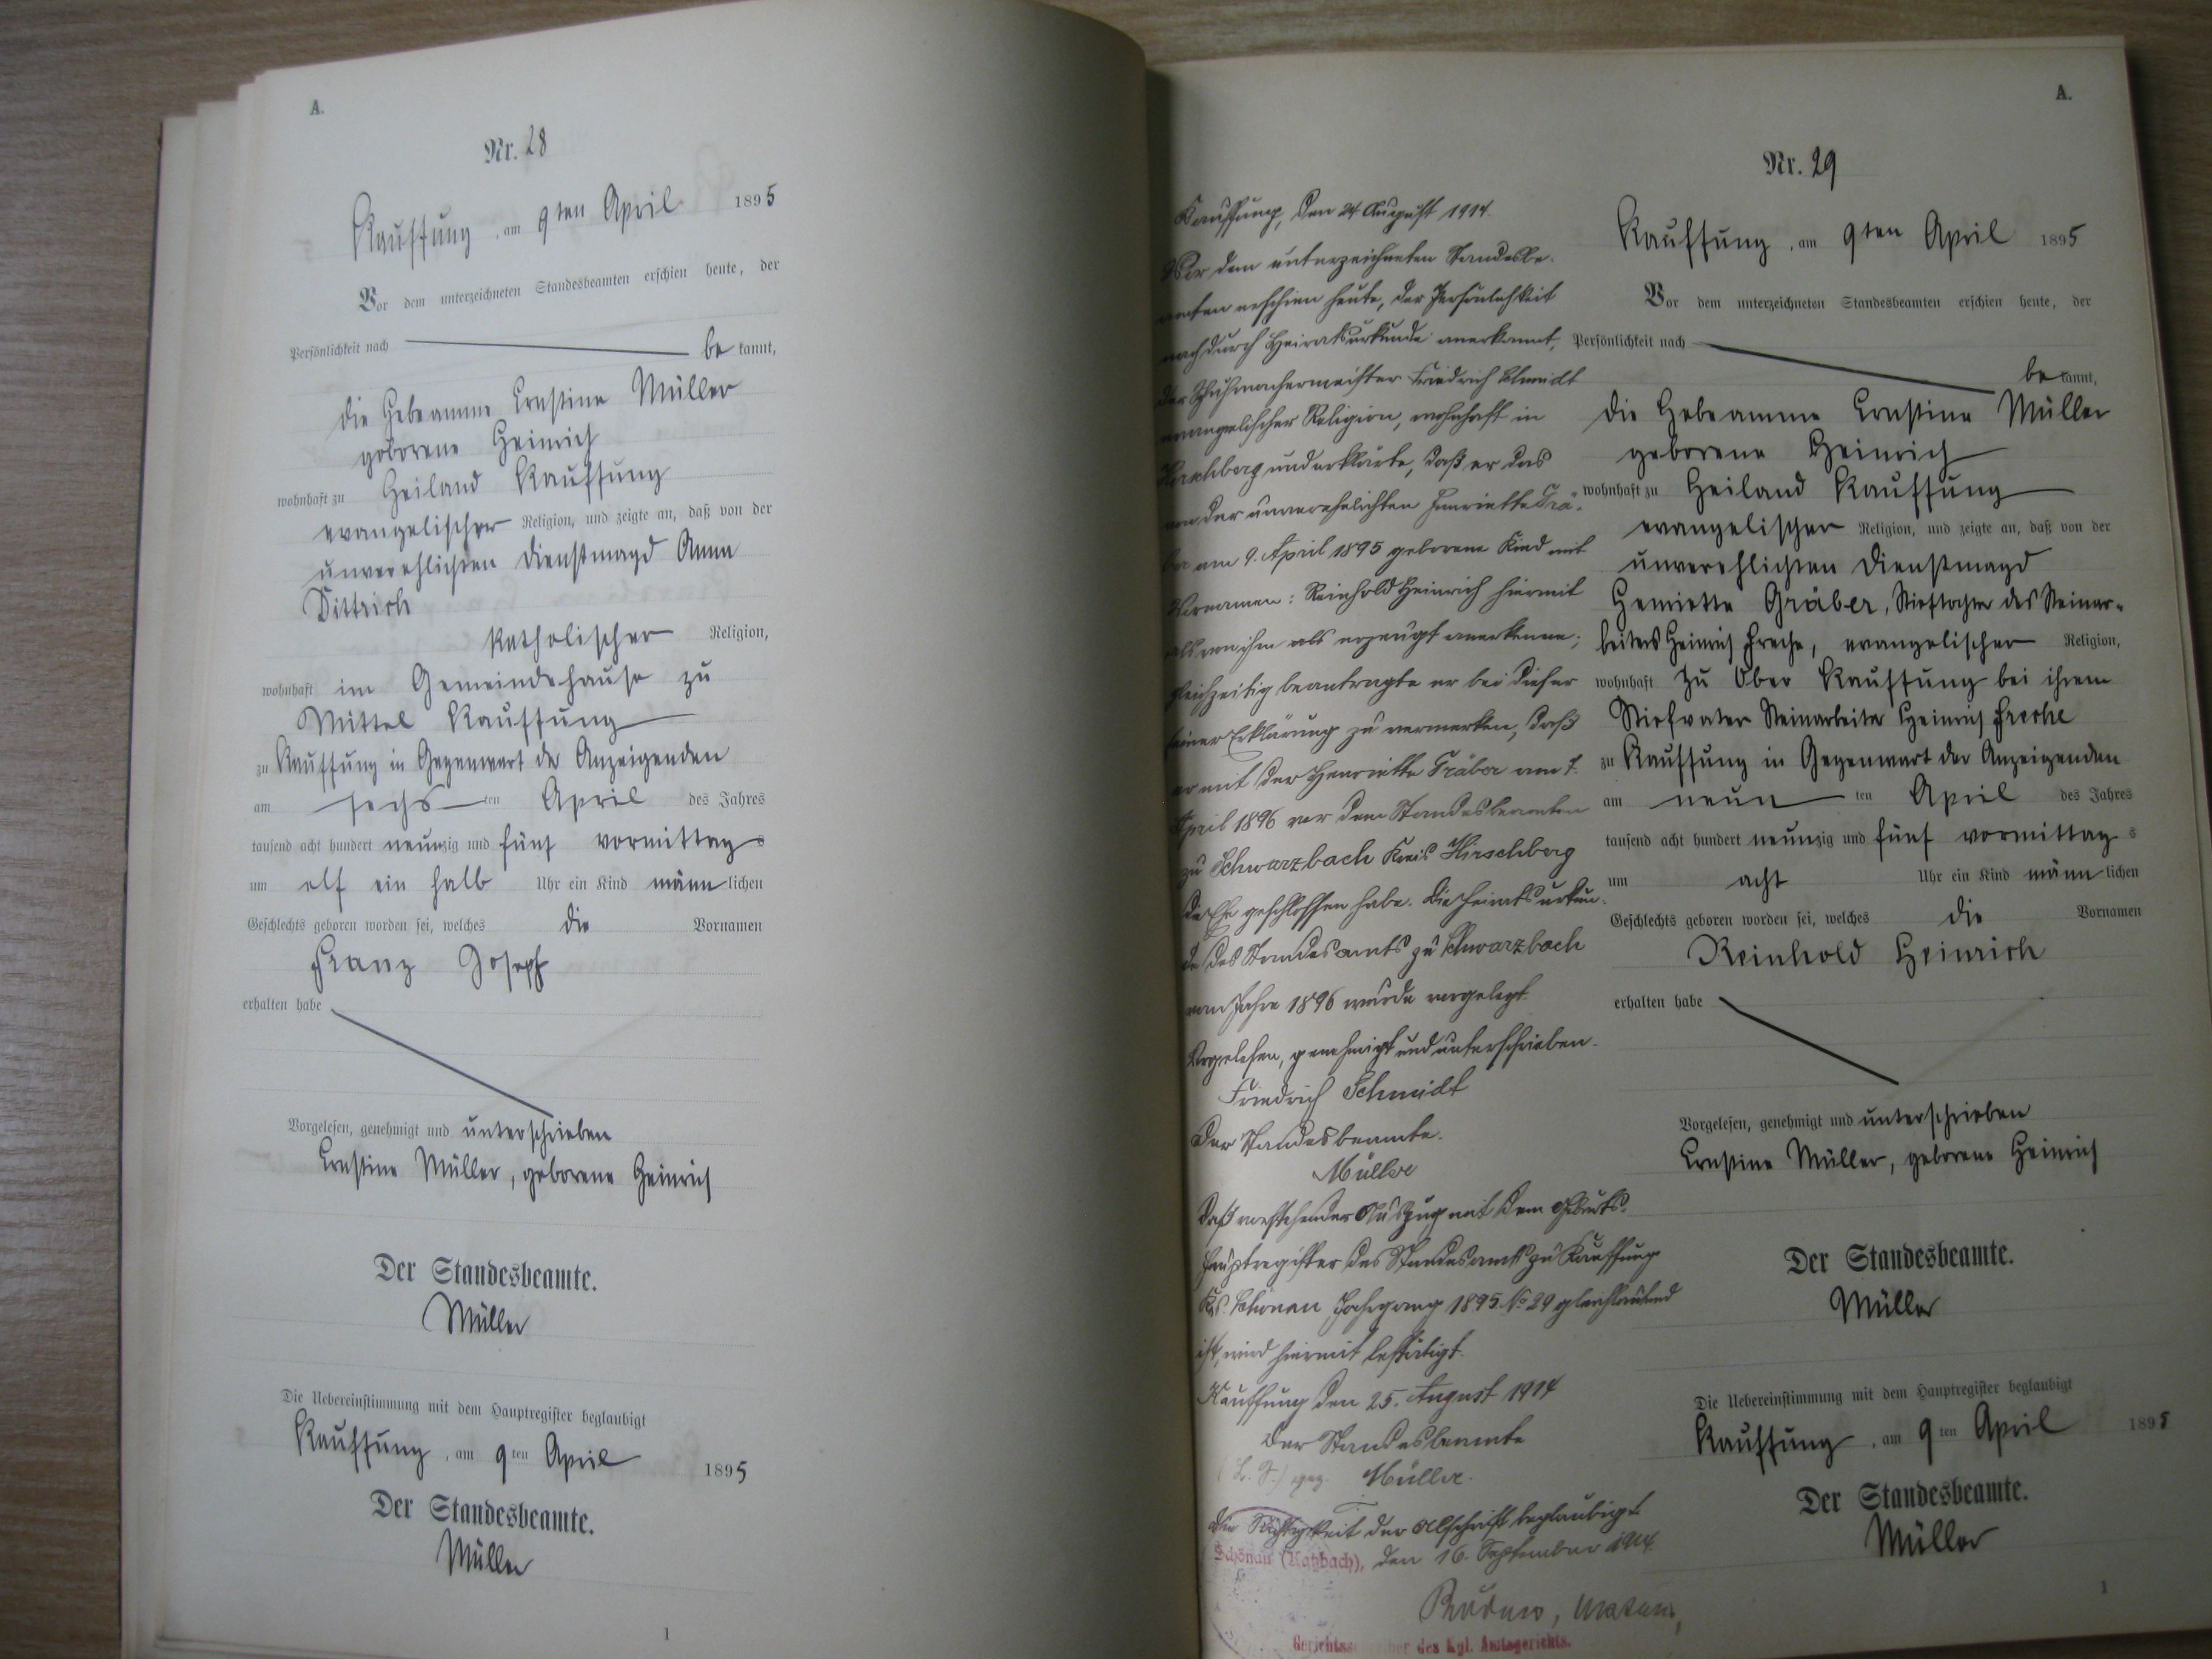 A.
Nr. 28
Kauffung, am 9ten April 1895
Vor dem unterzeichneten Standesbeamten erschien heute, der
Persönlichkeit nach be kannt,
die Hebeamme Ernstine Müller
geborene Heinrich
wohnhaft zu Heiland Kauffung
evangelischer Religion, und zeigte an, daß von der
unverehlichten Dienstmagd Anna
Dittrich
katholischer Religion,
wohnhaft im Gemeindehause zu
Mittel Kauffung
zu Kauffung in Gegenwart der Anzeigenden
am sechs ten April des Jahres
tausend acht hundert neunzig und fünf vormittags
um elf ein halb Uhr ein Kind männlichen
Geschlechts geboren worden sei, welches die Vornamen
Franz Joseph
erhalten habe
Vorgelesen, genehmigt und unterschrieben
Ernstine Müller, geborene Heinrich
Der Standesbeamte.
Müller
Die Uebereinstimmung mit dem Hauptregister beglaubigt
Kauffung, am 9ten April 1895
Der Standesbeamte.
Müller
1
Kauffung, den 24 August 1914.
Vor dem unterzeichneten Standesbe-
amten erschien heute, der Persönlichkeit
nach durch Heiratsurkunde anerkannt,
der Schuhmachermeister Friedrich Schmidt
evangelischer Religion, wohnhaft in
Hirschberg und erklärte, daß er das
von der unverehelichten Henriette Grä-
ber am 9. April 1895 geborene Kind mit
Vornamen: Reinhold Heinrich hiermit
als von ihm als erzeugt anerkenne;
gleichzeitig beantragte er bei dieser
seiner Erklärung zu vermerken, daß
er mit der Henriette Gräber am 7.
April 1896 vor dem Standesbeamten
zu Schwarzbach Kreis Hirschberg
die Ehe geschlossen habe. Die Heiratsurkun-
de des Standesamts zu Schwarzbach
vom Jahre 1896 wurde vorgelegt.
Vorgelesen, genehmigt und unterschrieben.
Friedrich Schmidt
Der Standesbeamte.
Müller
Daß vorstehender Auszug mit dem Geburts-
Hauptregister des Standesamts zu Kauffung
Krs. Schönau Jahrgang 1895 No 29 gleichlautend
ist, wird hiermit bestätigt.
Kauffung den 25. August 1914
Der Standesbeamte
(L. S.) gez. Müller.
Die Richtigkeit der Abschrift beglaubigt
Schönau (Katzbach), den 16. September 1914.
Gerichtsschreiber des Kgl. Amtsgerichts.
A.
Nr. 29
Kauffung, am 9ten April 1895
Vor dem unterzeichneten Standesbeamten erschien heute, der
Persönlichkeit nach be kannt,
die Hebeamme Ernstine Müller
geborene Heinrich
wohnhaft zu Heiland Kauffung
evangelischer Religion, und zeigte an, daß von der
unverehlichten Dienstmagd
Henriette Gräber, Stieftochter des Steinar-
beiters Heinrich Freche, evangelischer Religion,
wohnhaft zu Ober Kauffung bei ihrem
Stiefvater Steinarbeiter Heinrich Freche
zu Kauffung in Gegenwart der Anzeigenden
am neun ten April des Jahres
tausend acht hundert neunzig und fünf vormittags
um acht Uhr ein Kind männlichen
Geschlechts geboren worden sei, welches die Vornamen
Reinhold Heinrich
erhalten habe
Vorgelesen, genehmigt und unterschrieben
Ernstine Müller, geborene Heinrich
Der Standesbeamte.
Müller
Die Uebereinstimmung mit dem Hauptregister beglaubigt
Kauffung, am 9ten April 1895
Der Standesbeamte.
Müller
1